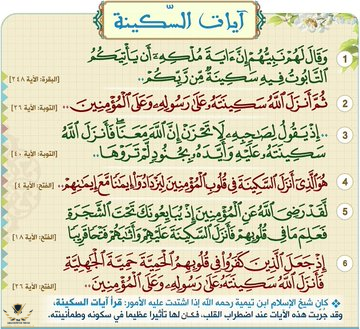 آيات السكينة
1 وَقَالَ لَهُمْ نَبِيُّهُمْ إِنَّ ءَايَةَ مُلْكِهِۦٓ أَن يَأْتِيَكُمُ
التَّابُوتُ فِيهِ سَكِينَةٌ مِّن رَّبِّكُمْ.. البقرة: الآية ٢٤٨
2 ثُمَّ أَنزَلَ اللَّهُ سَكِينَتَهُۥ عَلَىٰ رَسُولِهِۦ وَعَلَى الْمُؤْمِنِينَ.. التوبة: الآية ٢٦
3 ..إِذْ يَقُولُ لِصَٰحِبِهِۦ لَا تَحْزَنْ إِنَّ اللَّهَ مَعَنَا فَأَنزَلَ اللَّهُ
سَكِينَتَهُۥ عَلَيْهِ وَأَيَّدَهُۥ بِجُنُودٍ لَّمْ تَرَوْهَا.. التوبة: الآية ٤٠
4 هُوَ الَّذِىٓ أَنزَلَ السَّكِينَةَ فِى قُلُوبِ الْمُؤْمِنِينَ لِيَزْدَادُوٓا إِيمَٰنًا مَّعَ إِيمَٰنِهِمْ.. الفتح: الآية ٤
5 لَّقَدْ رَضِىَ اللَّهُ عَنِ الْمُؤْمِنِينَ إِذْ يُبَايِعُونَكَ تَحْتَ الشَّجَرَةِ
فَعَلِمَ مَا فِى قُلُوبِهِمْ فَأَنزَلَ السَّكِينَةَ عَلَيْهِمْ وَأَثَٰبَهُمْ فَتْحًا قَرِيبًا الفتح: الآية ١٨
6 إِذْ جَعَلَ الَّذِينَ كَفَرُوا فِى قُلُوبِهِمُ الْحَمِيَّةَ حَمِيَّةَ الْجَٰهِلِيَّةِ
فَأَنزَلَ اللَّهُ سَكِينَتَهُۥ عَلَىٰ رَسُولِهِۦ وَعَلَى الْمُؤْمِنِينَ.. الفتح: الآية ٢٦
كان شيخ الإسلام ابن تيمية رحمه الله إذا اشتدت عليه الأمور: قرأ آيات السكينة،
وقد جربت هذه الآيات عند اضطراب القلب، فكان لها تأثيرا عظيما في سكونه وطمأنينته.